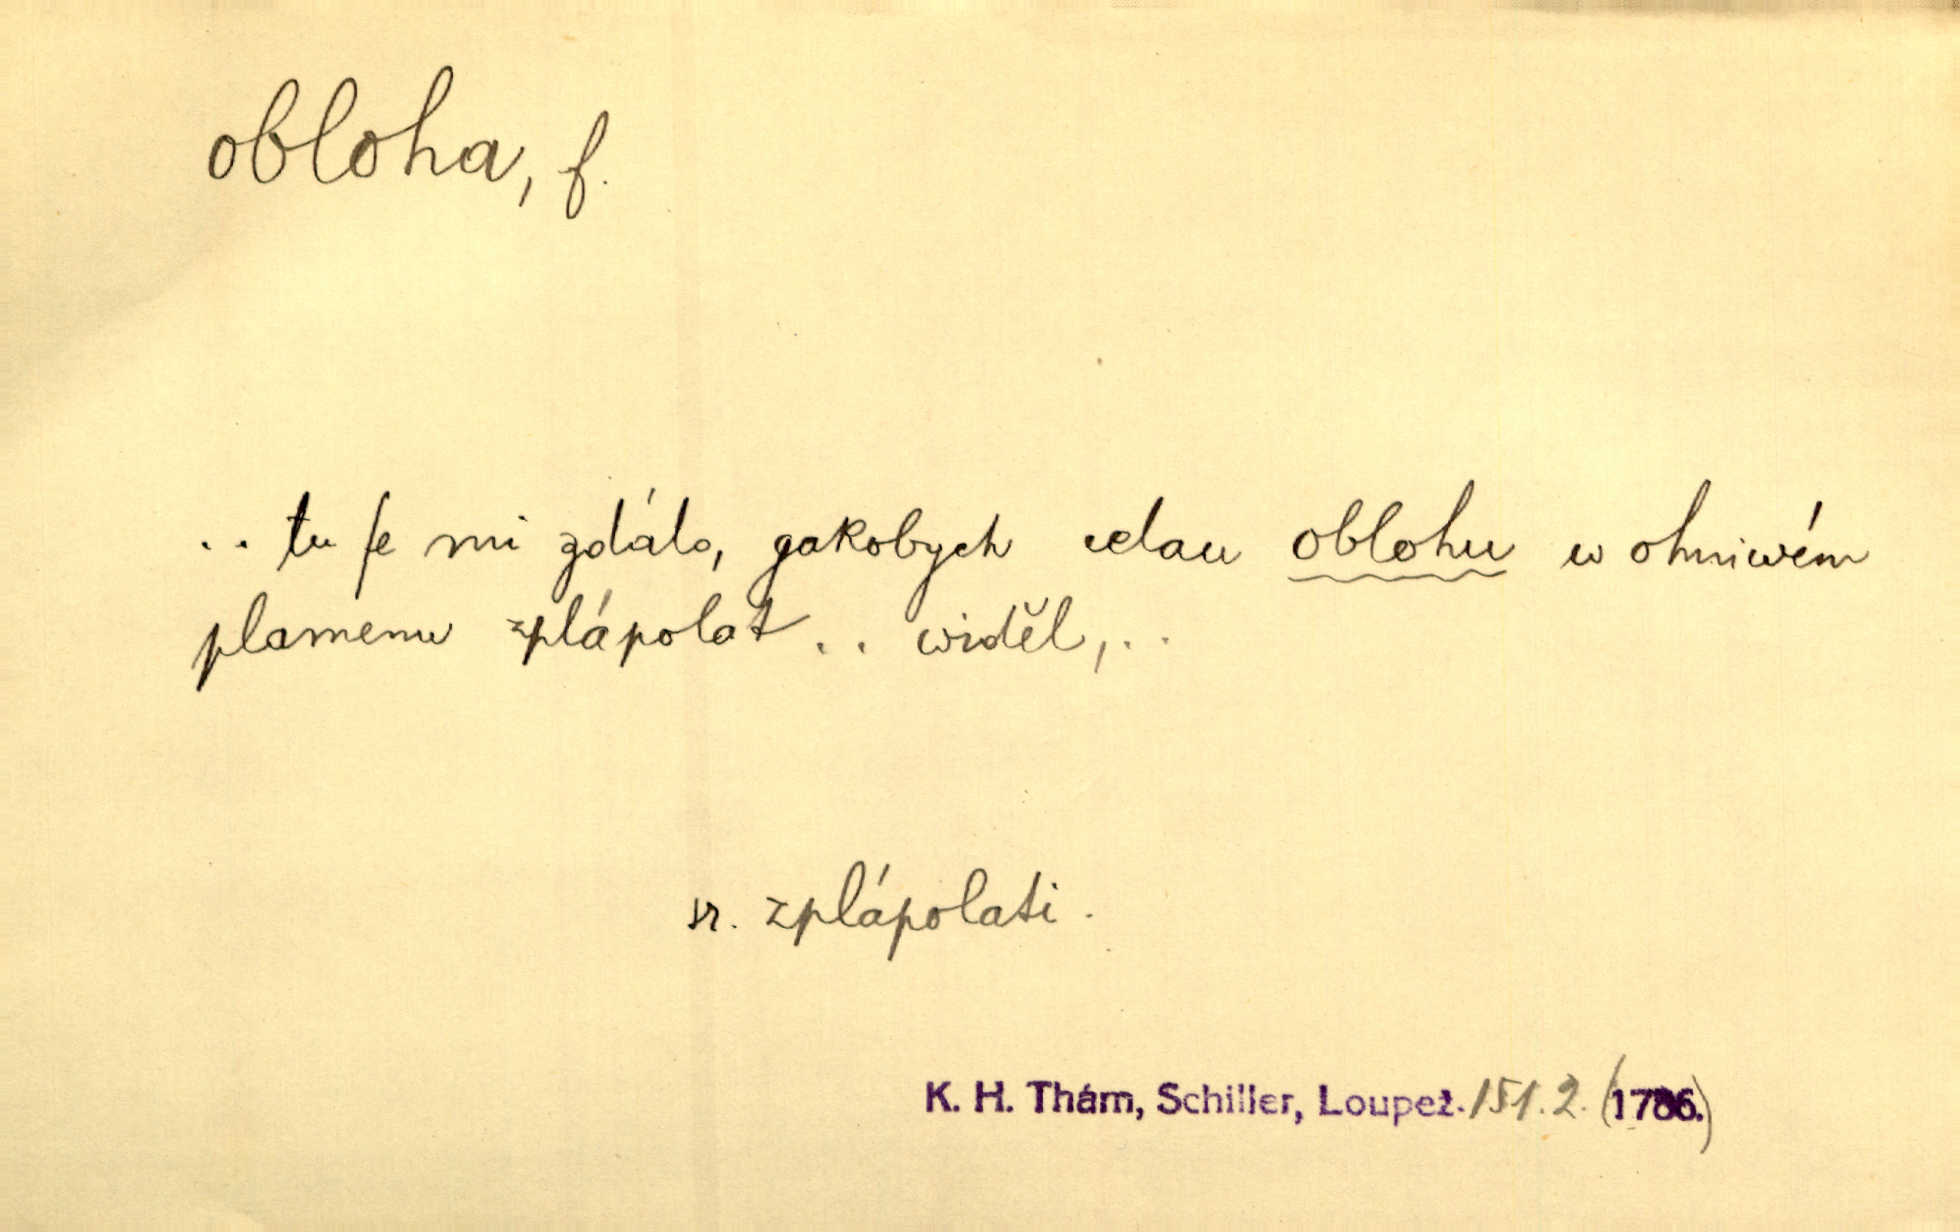 obloha, f.
.. tu ſe mi zdálo, gakobych celau oblohu w ohniwém
plamenu zplápolat .. widěl, ..
sr. zplápolati.
K. H. Thám, Schiller, Loupež. 151.2. (1786.)